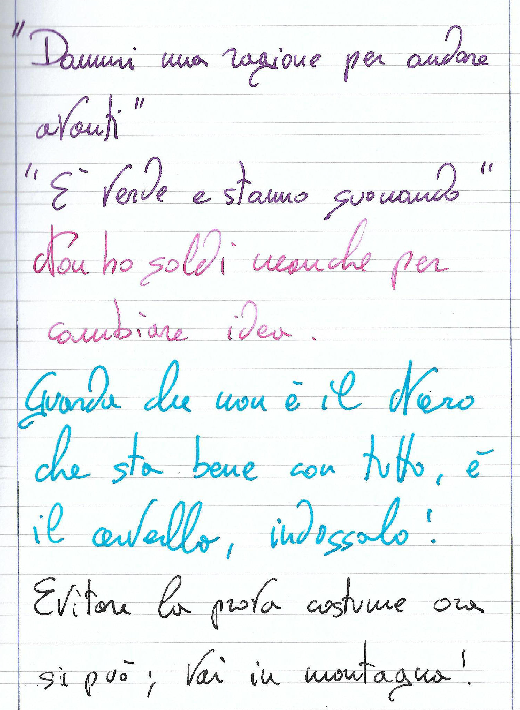 "Dammi una ragione per andare
avanti"
"È verde e stanno suonando"
Non ho soldi neanche per
cambiare idea.
Guarda che non è il Nero
che sta bene con tutto, è
il cervello, indossalo!
Evitare la prova costume ora
si può; vai in montagna!